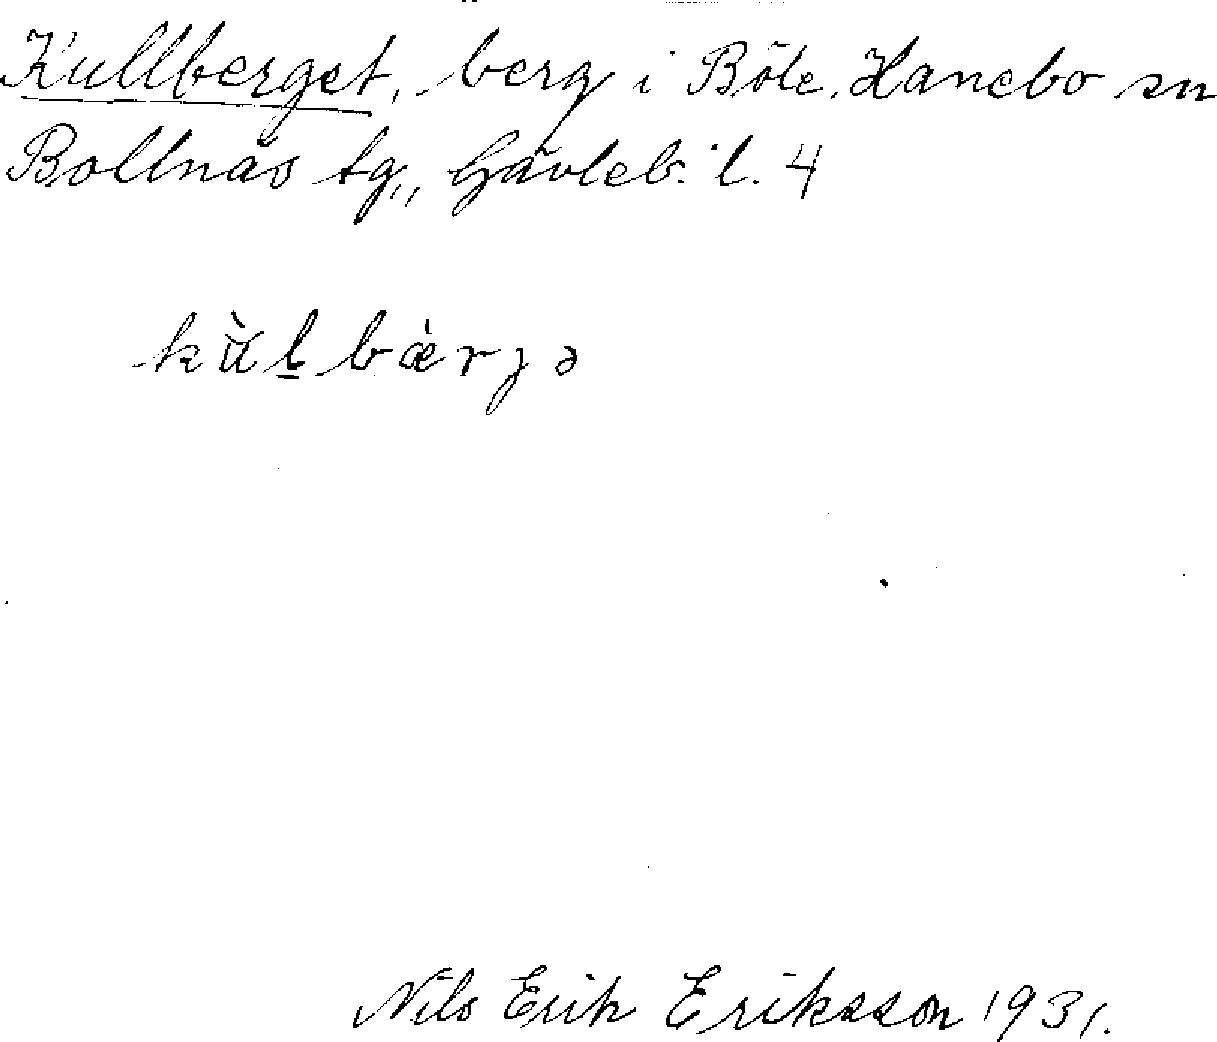 Kullberget, berg i Böle, Hanebo sn
Bollnäs tg., Gävleb. l. 4
kùlbæ̀rjə
Nils Erik Eriksson 1931.